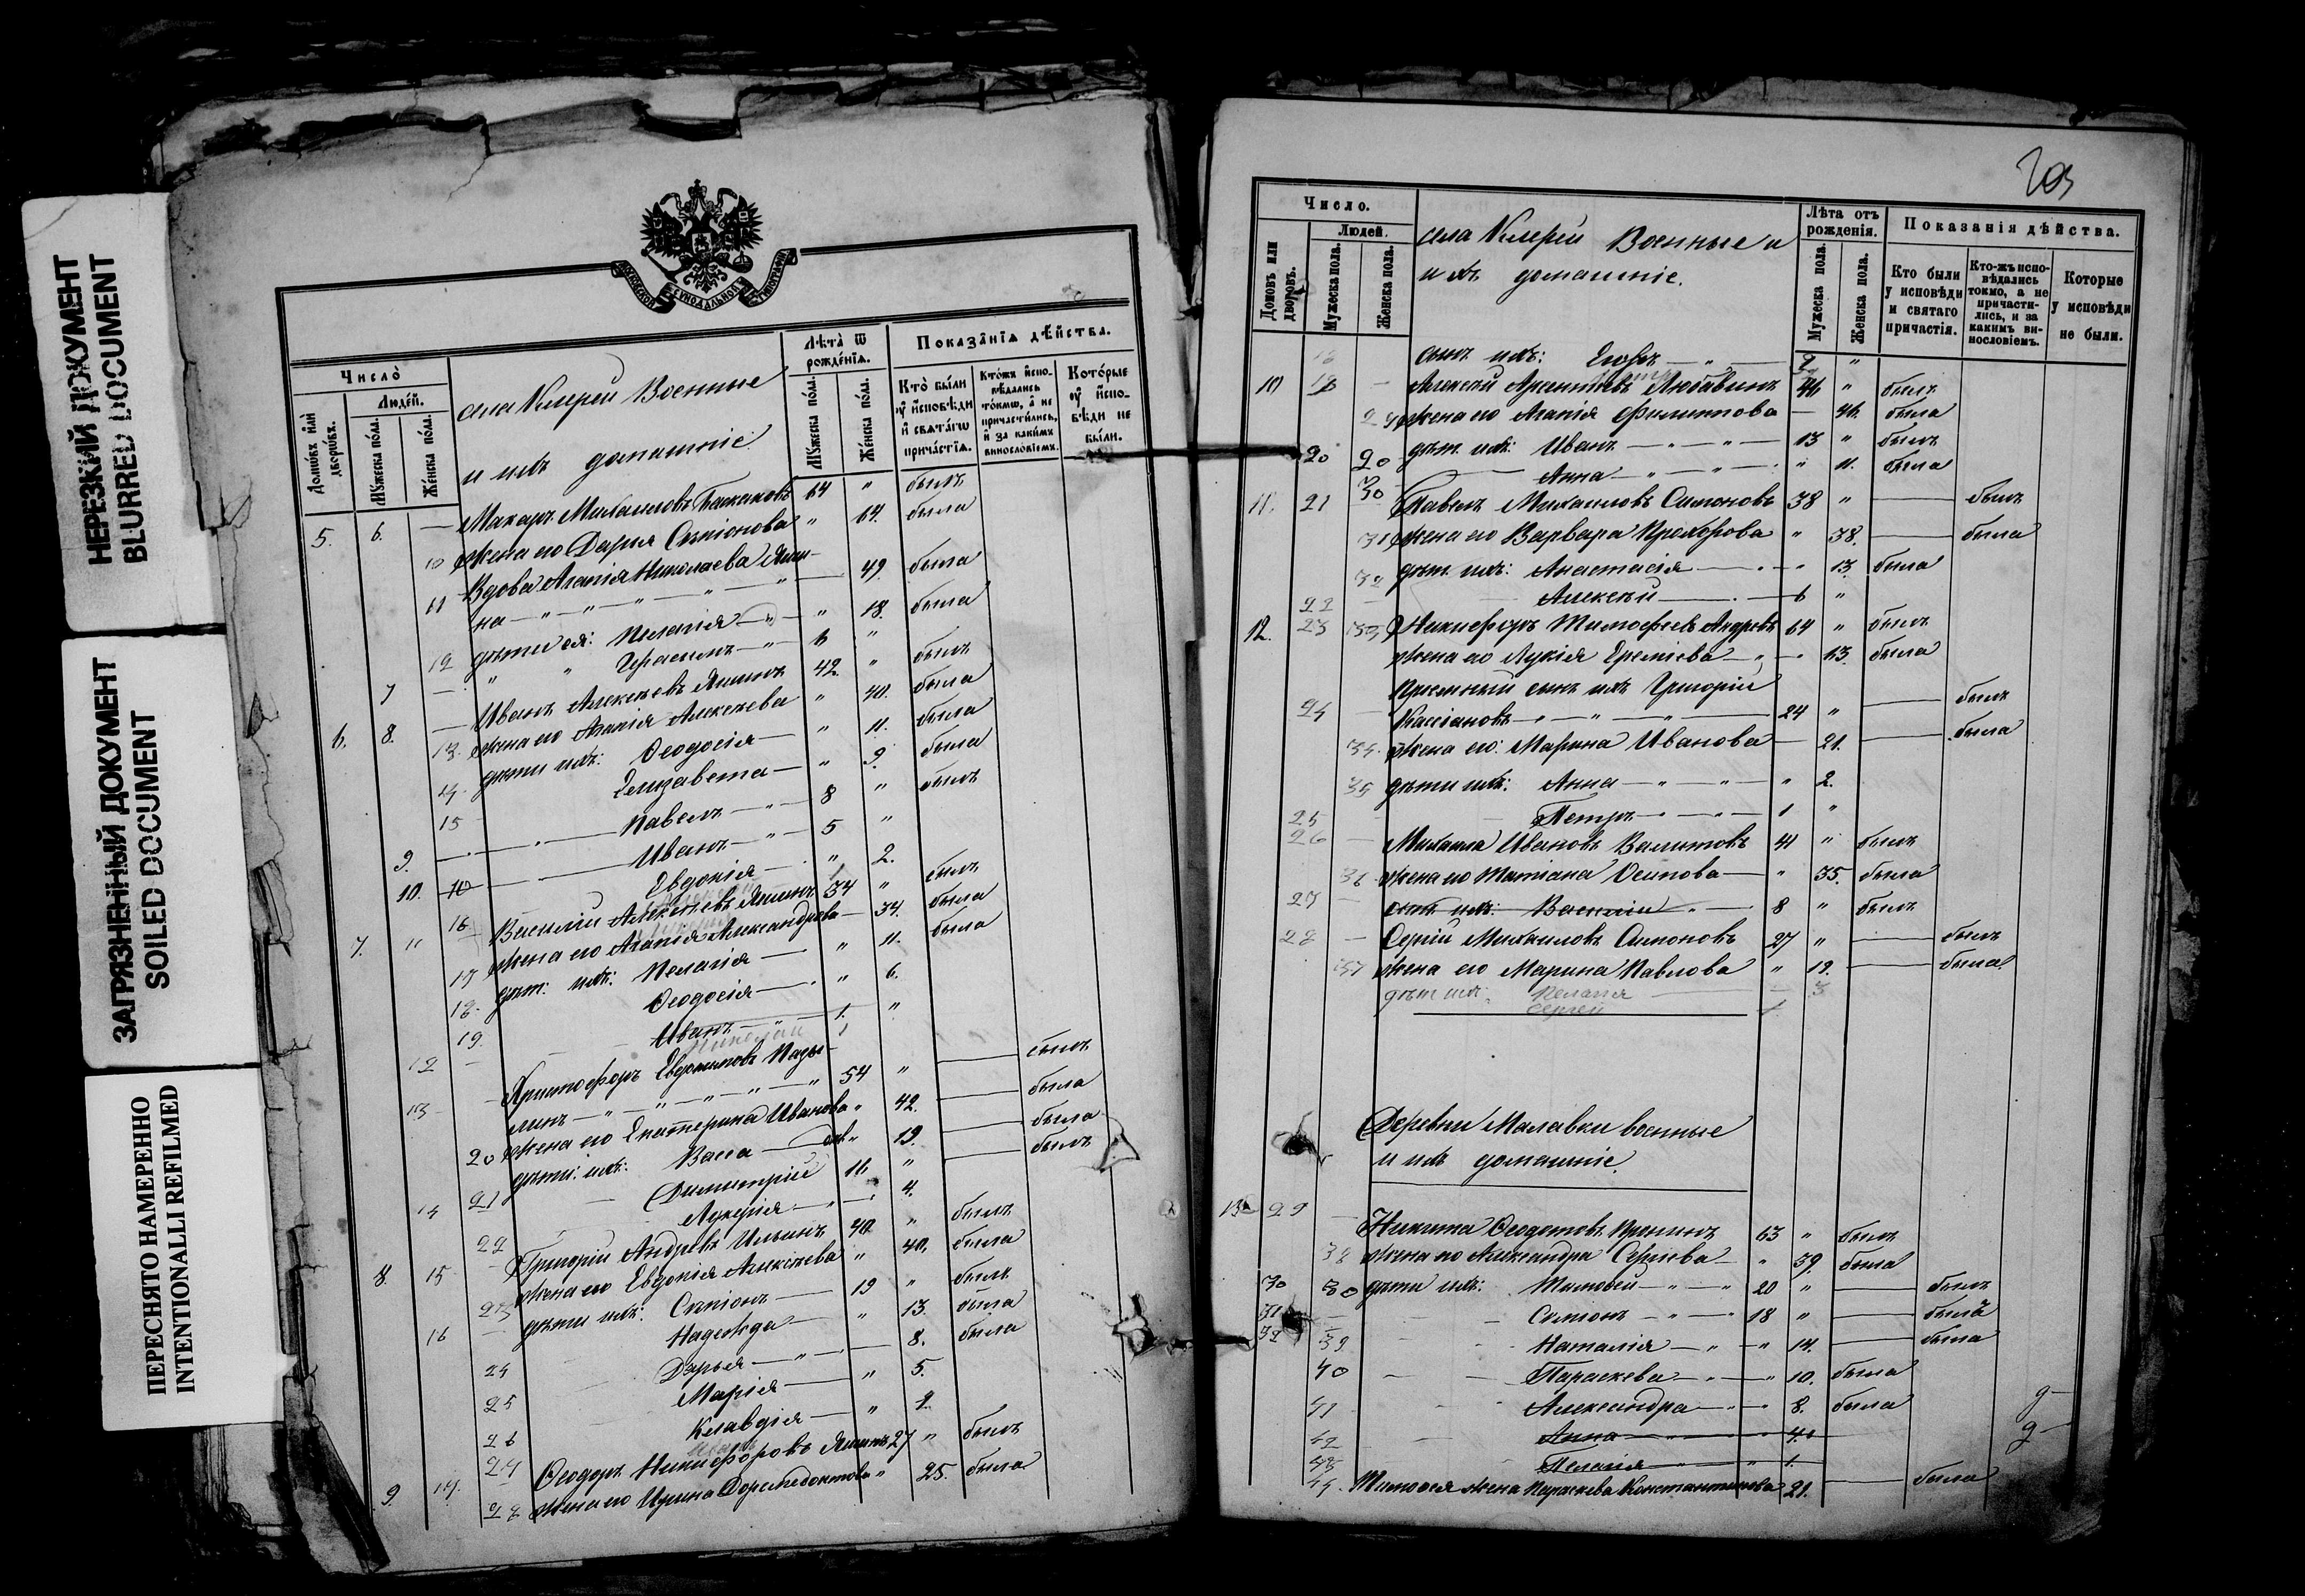 НЕРЕЗКИЙ ДОКУМЕНТ
BLURRED DOCUMENT
ЗАГРЯЗНЕННЫЙ ДОКУМЕНТ
SOILED DOCUMENT
ПЕРЕСНЯТО НАМЕРЕННО
INTENTIONALLI REFILMED
МОСКОВСКОЙ СѴНОДАЛЬНОЙ ТИПОГРАФІИ
Число
Людей.
Домовъ или дворовъ.
Мужеска пола.
Женска пола.
села Военные
и ихъ домашніе
Лѣта ѿ рожденія.
Мужеска пола.
Женска пола.
Показанія дѣйства.
Кто были у исповѣди и святагѡ причастія.
Ктожъ исповѣдались токмѡ, а не причастились, и за какимъ винословіемъ.
Которые у исповѣди не были.
5. 6. — Макаръ Михаиловъ 64 " былъ
10 жена его Дарья Симіонова " 64. была
11 Вдова Агапія Николаева Яши-
на — " — " — " — 49. была
12 дѣти ея: Пелагія — " — " 18. была
7 — " " Герасимъ — " — 6 "
6. 8. — Иванъ Алексѣевъ Яшинъ 42. " былъ
13. жена его Агапія Алексѣева " 40. была
14. дѣти ихъ: Ѳеодосія — " 11. была
15 Елизавета — " 9. была
9. — Павелъ — " — 8 " былъ
10. 10 — Иванъ — " — 5 "
16 Евдокія — " 2.
7. 11 Василій Алексѣевъ Яшинъ 34 " былъ
17 жена его Агапія Александрова — 34. была
18. дѣт. ихъ: Пелагія — " 11. была
19. Ѳеодосія — " 6.
12 — Иванъ — " — 1. "
Николай
13 Христофоръ
— " — " — " — " 54 " — былъ
20 жена его Екатерина Иванова " 42. — была
21 дѣти ихъ: Васса — " 19. — была
14 — Димитрій 11. " — былъ
22 Лукерія — " — 4.
8. 15 Григорій Андреевъ Ильинъ 40. " былъ
23 жена его Евдокія Алексѣева " 40. была
16 — дѣти ихъ: Симіонъ — 19 " былъ
24 Надежда — " 13. была
25 Дарья — " — 8. была
26 Марія — " 5.
27 Клавдія — "
9. 17. Ѳеодоръ Никифоровъ Яшинъ 27 " былъ
28 жена его Ирина Дормедонтова " 25. была
203
Число.
Людей.
Домовъ или дворовъ.
Мужеска пола.
Женска пола.
села Военные и
и ихъ домашніе.
Лѣта отъ рожденія.
Мужеска пола.
Женска пола.
Показанія дѣйства.
Кто были у исповѣди и святаго причастія.
Кто-жъ исповѣдались токмо, а не причастились, и за какимъ винословіемъ.
Которые у исповѣди не были.
сынъ ихъ: Егоръ — " — "
10 — Алексѣй Арсентьевъ Любавинъ 44. " былъ
жена его Агапія Филиппова — 46. была
20 дѣт. ихъ: Иванъ — " — " — 13 " былъ
Анна — " — " — " 11. была
11. 21 Павелъ Михаиловъ Симоновъ 38 " — былъ
31 жена его Варвара Прохорова " 38. — была
32 дѣт. ихъ: Анастасія — " 13. была
22 Алексѣй — 6 "
12. 23 Никифоръ Тимофеевъ Андреевъ 64 " былъ
жена его Лукія Еремѣева — " — 63. была
Пріемный сынъ ихъ Григорій
24 Кассіановъ — " — " — " — 24 " — былъ
34. жена его: Марина Иванова — 21. — была
35 дѣти ихъ: Анна — " — " — " 2.
25 Петръ — " — " — 1 "
26 — Михаила Ивановъ Валитовъ 41 " былъ
36 жена его Татіана Осипова — " 35. была
27 — сынъ ихъ: Василій — 8 " былъ
28 — Сергій Михаиловъ Симоновъ 27 " — былъ
37 жена его Марина Павлова " 19. — была
дѣт ихъ. Пелагія — 3
Сергей 1
Деревни Малавки военные
и ихъ домашніе.
13 29 — Никита Ѳеодотовъ Пронинъ 63 " былъ
38 жена его Александра Сергѣева — " 39. была
30 дѣти ихъ: Тимофей — " — " 20 " — былъ
31 — Симіонъ — " — " 18 " — былъ
39 Наталія — " — " 14. — была
40 Параскева — " — " 10. была
41 Александра — " — " 8. была
42 Анна — 4.
43 Пелагія — " 1.
44. Тимофея жена Параскева Константинова 21. — была